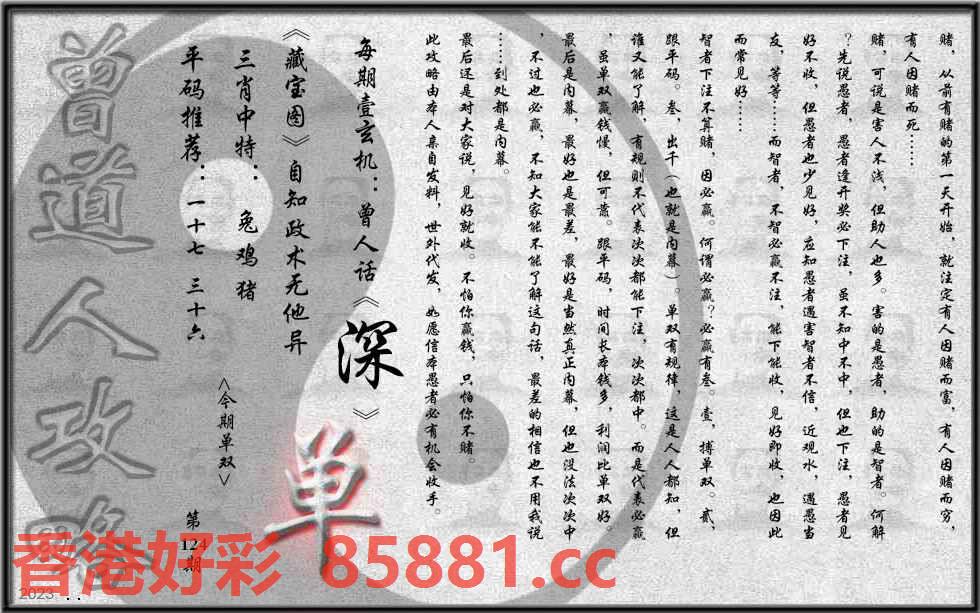 赌，从前有赌的第一天开始，就注定有人因赌而富，有人因赌而穷，
有人因赌而死……
赌，可说是害人不浅，但助人也多。害的是愚者，助的是智者。何解
？先说愚者，愚者逢开奖必下注，虽不知中不中，但也下注，愚者见
好不收，但愚者也少见好，应知愚者遇害智者不信，近观水，遇愚当
友，等等……而智者，不智必赢不注，能下能收，见好即收，也因此
而常见好……
智者下注不算赌，因必赢。何谓必赢？必赢有叁。壹，搏单双。贰，
跟平码。叁，出千（也就是内幕）。单双有规律，这是人人都知，但
谁又能了解，有规则不代表次次都能下注，次次都中。而是代表必赢
，虽单双赢钱慢，但可靠。跟平码，时间长本钱多，利润比单双好。
最后是内幕，最好也是最差，最好是当然真正内幕，但也没法次次中
，不过也必赢，不知大家能不能了解这句话，最差的相信也不用我说
……到处都是内幕。
最后还是对大家说，见好就收。不怕你赢钱，只怕你不赌。
此攻略由本人亲自发料，世外代发，如愿信本愚者必有机会收手。
每期壹玄机：曾人话《深》
《藏宝图》自知政术无他异
三肖中特：兔鸡猪
平码推荐：一十七 三十六
<今期单双>
单
第
124
期
曾道人攻略
香港好彩 85881.cc
2023